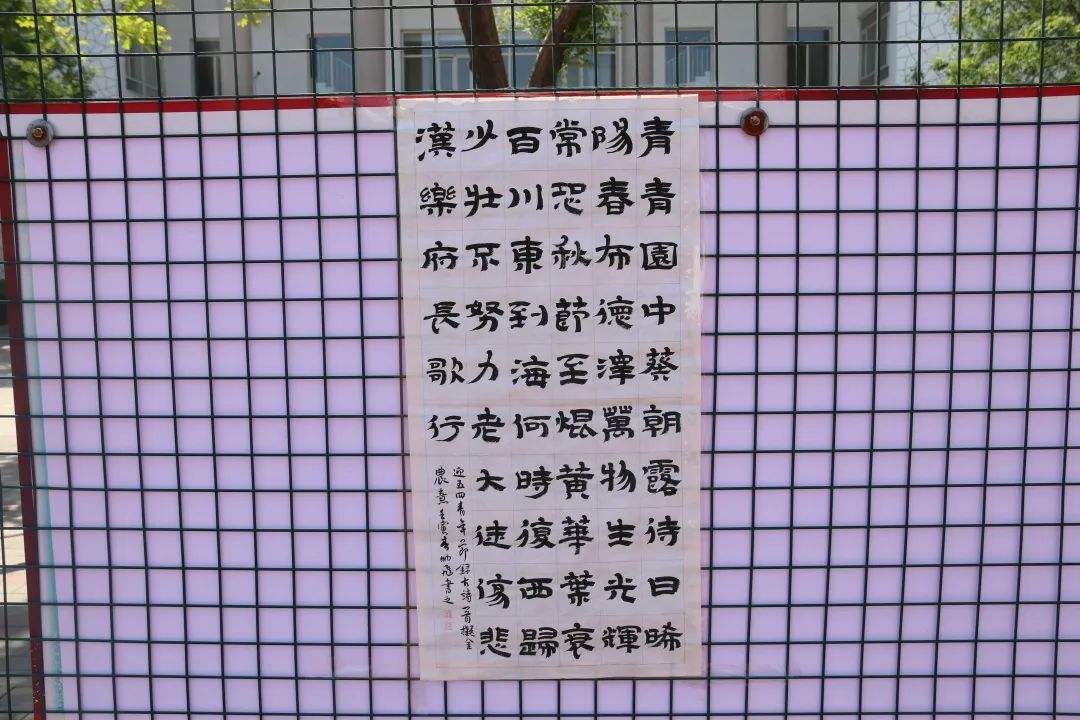 青青園中葵朝露待日晞
陽春布德澤萬物生光輝
常恐秋節至焜黃華葉衰
百川東到海何時復西歸
少壯不努力老大徒傷悲
漢樂府長歌行
迎五四青年節錄古詩一首擬金
農意壬寅春帅飛書之